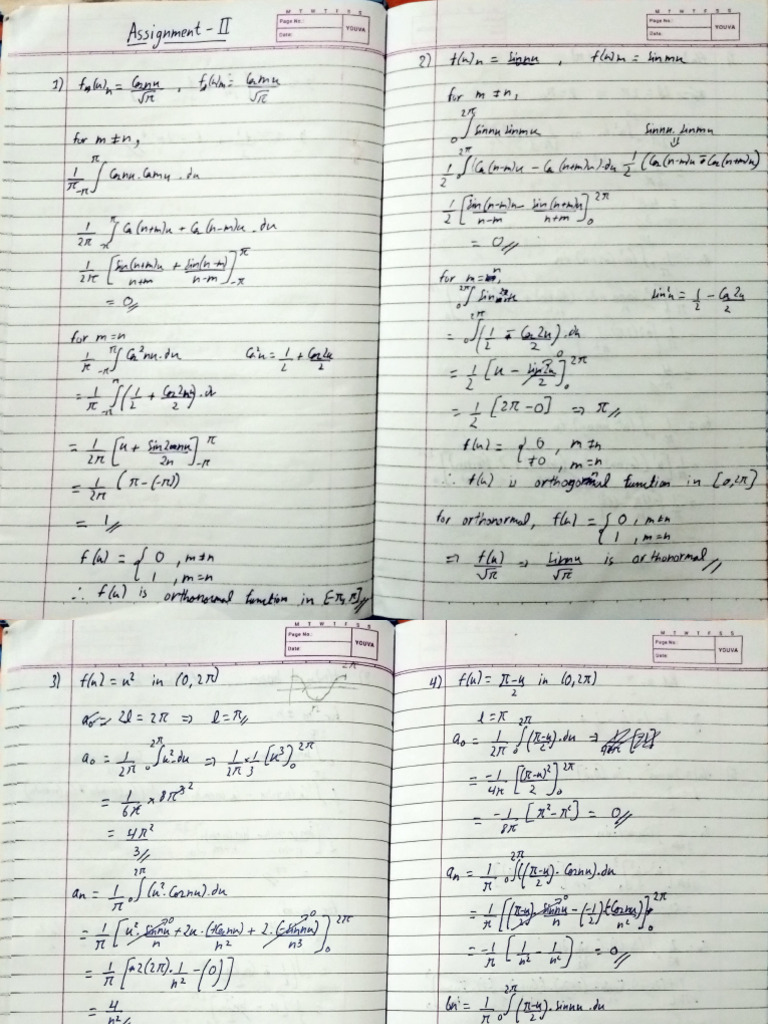 M T W T F S S
Page No.:
Date:
YOUVA
Assignment - II
1) f(x)n = Cosnx/√π , f(x)m = Cosmx/√π
for m ≠ n,
1/π ∫-π^π Cosnx.Cosmx.dx
1/2π ∫-π^π Cos(n+m)x + Cos(n-m)x.dx
1/2π [sin(n+m)x/n+m + sin(n-m)/n-m]-π^π
= 0//
for m=n
1/π ∫-π^π Cos²nx.dx Cos²x = 1/2 + Cos2x/2
= 1/π ∫-π^π (1/2 + Cos2nx/2).dx
= 1/2π [x + sin2nx/2n]-π^π
= 1/2π (π-(-π))
= 1//
f(x) = { 0 , m≠n
1 , m=n
∴ f(x) is orthonormal function in [-π, π]//
M T W T F S S
Page No.:
Date:
YOUVA
2) f(x)n = sinnx , f(x)m = sinmx
for m ≠ n,
0∫2π sinnx sinmx sinnx.sinmx
⇓
1/2 0∫2π (Cos(n-m)x - Cos(n+m)x).dx 1/2 (Cos(n-m)x - Cos(n+m)x)
1/2 [sin(n-m)x/n-m - sin(n+m)x/n+m]0^2π
= 0//
for m=n
0∫2π sin²x sin²x = 1/2 - Cos2x/2
= 0∫2π (1/2 - Cos2x/2).dx
= 1/2 [x - sin2x/2]0^2π
= 1/2 [2π-0] ⇒ π//
f(x) = { 0 , m≠n
≠0 , m=n
∴ f(x) is orthogonal function in [0,2π]
for orthonormal, f(x) = { 0 , m≠n
1 , m=n
⇒ f(x)/√π ⇒ sinnx/√π is orthonormal//
M T W T F S S
Page No.:
Date:
YOUVA
3) f(x) = x² in (0,2π)
2l = 2π ⇒ l=π//
a0 = 1/2π 0∫2π x².dx ⇒ 1/2π × 1/3 [x³]0^2π
= 1/6π × 8π³ 2
= 4π²/3//
an = 1/π 0∫2π (x².Cosnx).dx
= 1/π [x².sinnx/n + 2x.(+Cosnx)/n² + 2.(-sinnx)/n³]0^2π
= 1/π [+2(2π).1/n² - (0)]
= 4/n²//
M T W T F S S
Page No.:
Date:
YOUVA
4) f(x) = π-x/2 in (0,2π)
l=π
a0 = 1/2π 0∫2π (π-x/2).dx ⇒
= -1/4π [(π-x)²/2]0^2π
= -1/8π [π²-π²] = 0//
an = 1/π 0∫2π ((π-x)/2).Cosnx).dx
= 1/π [(π-x)/2.sinnx/n - (-1/2).(-Cosnx)/n²]0^2π
= -1/π [1/n² - 1/n²] = 0//
bn = 1/π 0∫2π (π-x/2).sinnx.dx